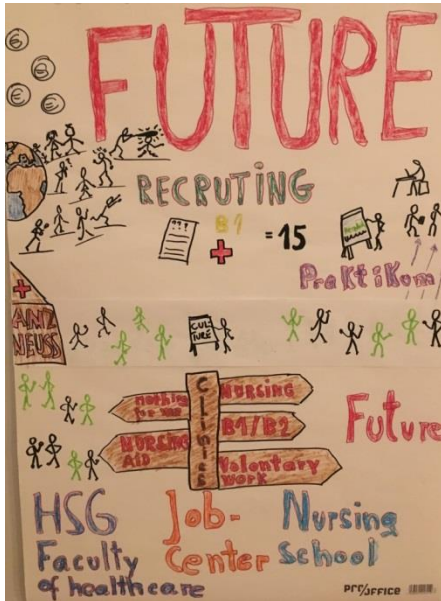 FUTURE
RECRUTING
???
B1
= 15
PraKtiKum
ANZ
NEUSS
CUL
TURE
Clinics
nothing
for me
NURSING
B1/B2
NURSING
AID
Volontary
WORK
Future
HSG
Faculty
of healthcare
Job-
Center
Nursing
School
pro/office